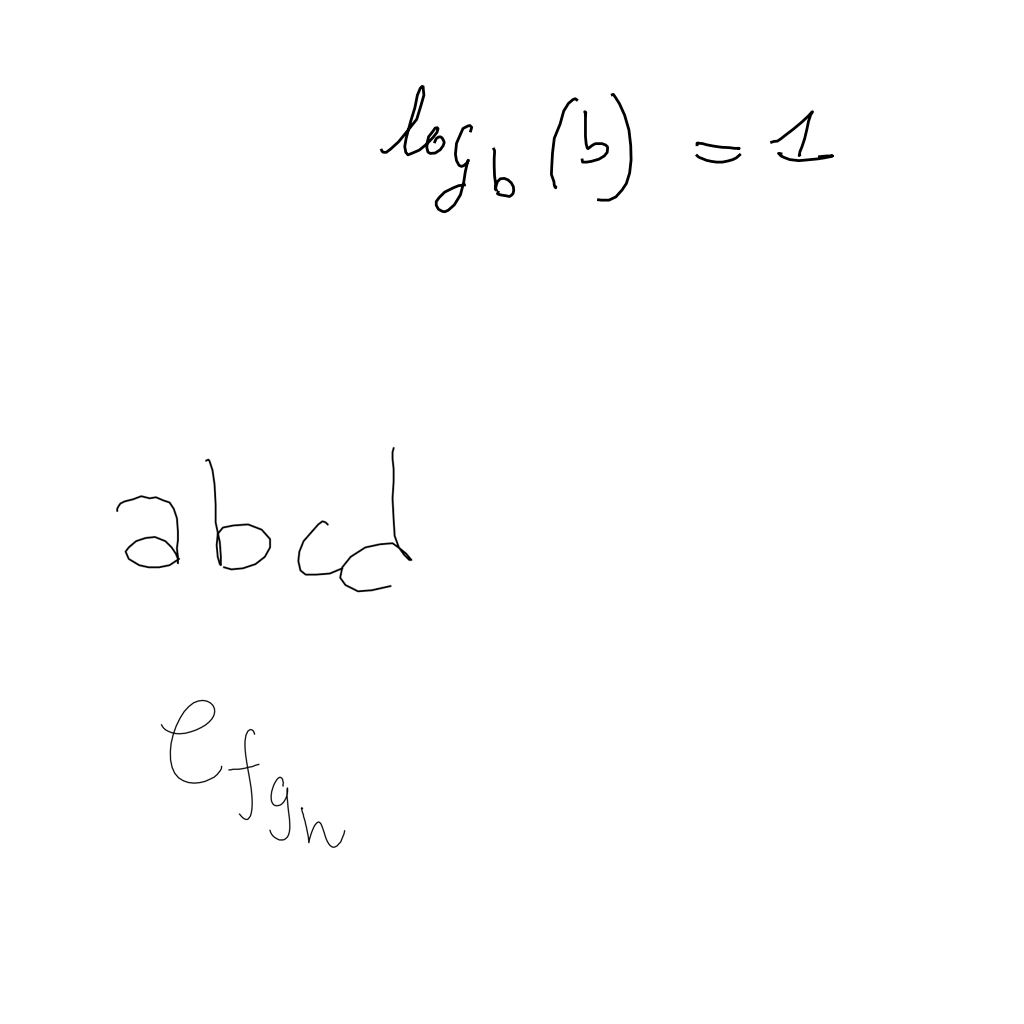 log_b (b) = 1
abcd
efgh